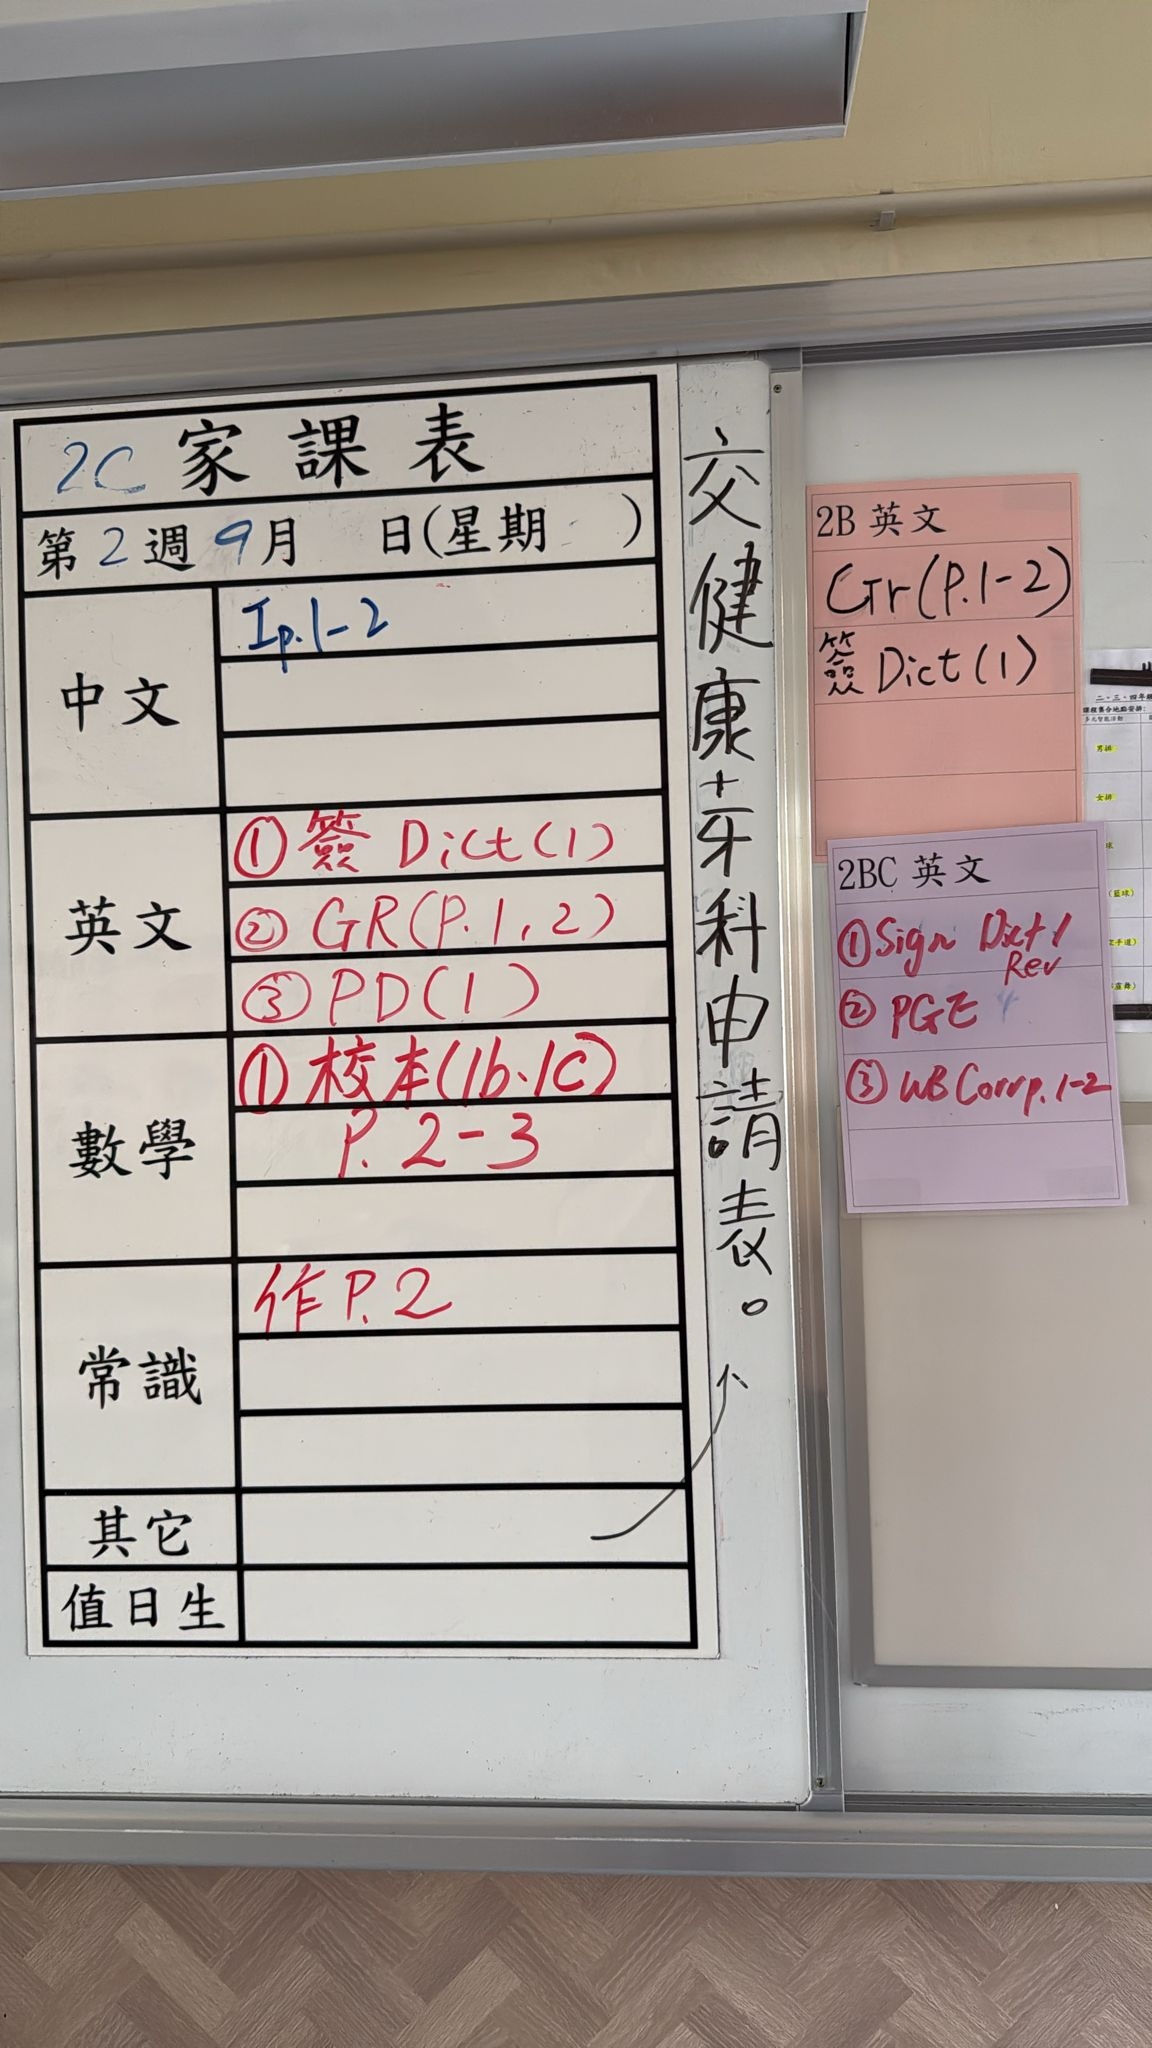 2C 家課表
第2週 9月 日(星期 )
中文
Ip.1-2
英文
① 簽 Dict(1)
② GR(P.1,2)
③ PD(1)
數學
① 校本(1b.1C)
P.2-3
常識
作 P.2
其它
值日生
交健康+牙科申請表。
2B 英文
Gr(P.1-2)
簽 Dict(1)
2BC 英文
① Sign Dict 1
Rev
② PGE
③ WB Corr p.1-2
二、三、四年
課程集合地點安排:
多元智能活動
男排
女排
球
(籃球)
空手道)